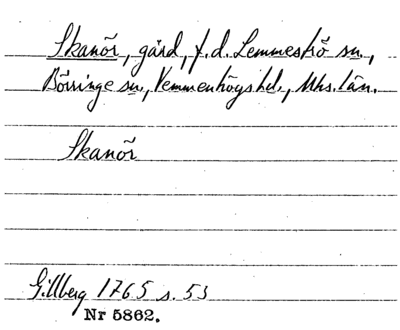 Skanör, gård, f.d. Lemmeströ sn.,
Börringe sn., Vemmenhögs hd., Mhs. län.
Skanör
Gillberg 1765 s. 53
Nr 5862.